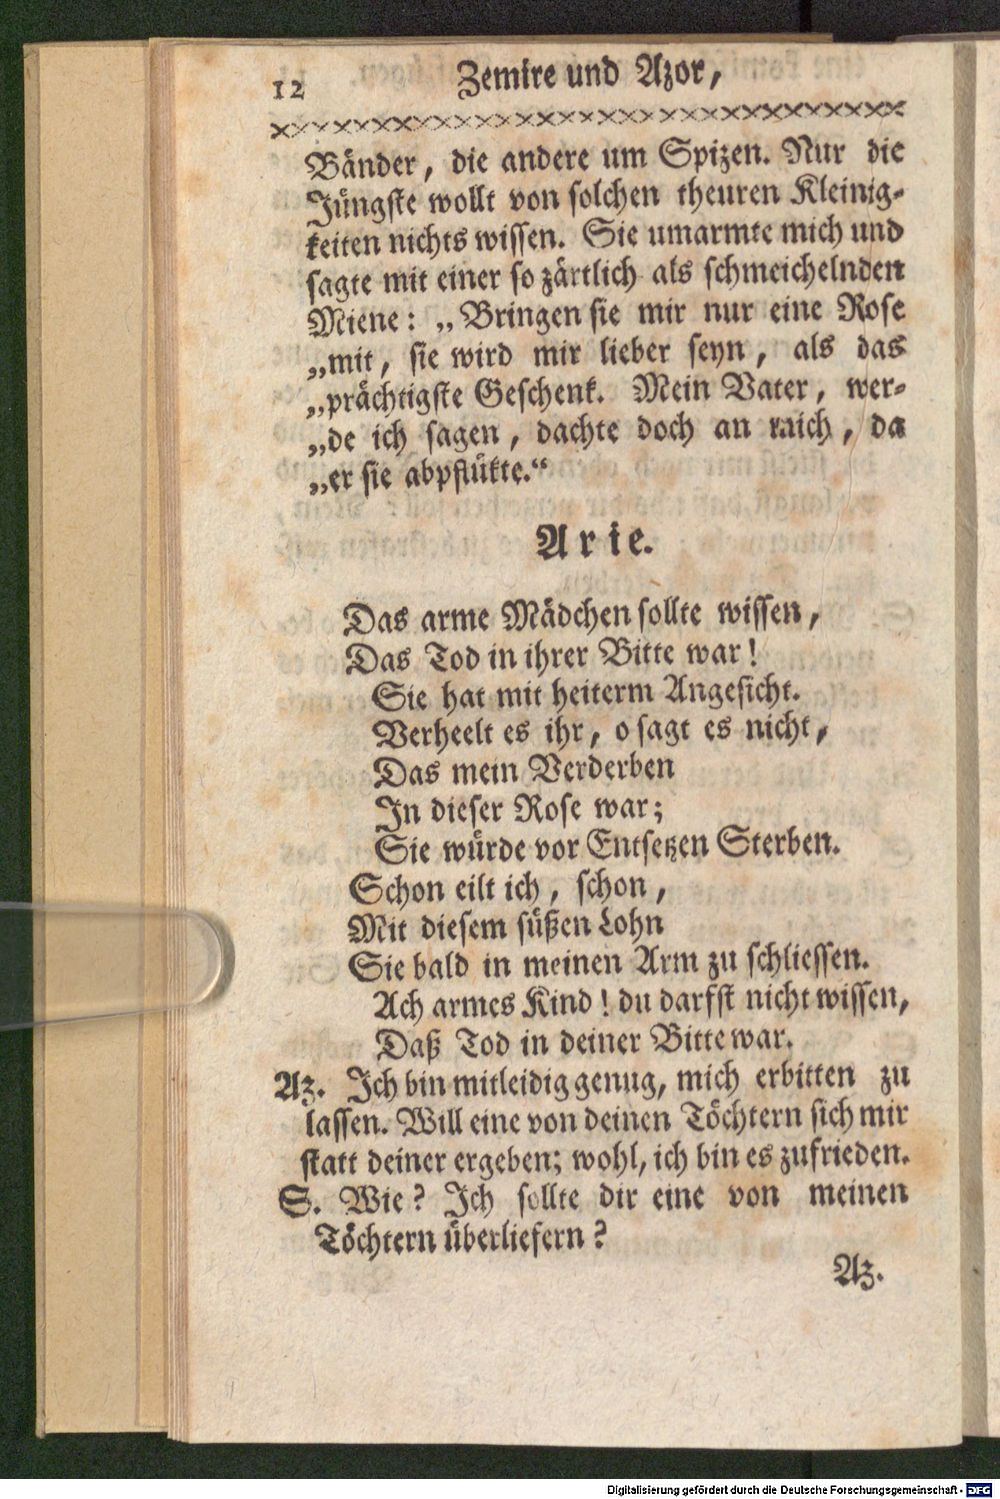 12 Zemire und Azor,
Bänder, die andere um Spizen. Nur die
Jüngste wollt von solchen theuren Kleinig-
keiten nichts wissen. Sie umarmte mich und
sagte mit einer so zärtlich als schmeichelnden
Miene: „Bringen sie mir nur eine Rose
„mit, sie wird mir lieber seyn, als das
„prächtigste Geschenk. Mein Vater, wer-
„de ich sagen, dachte doch an mich, da
„er sie abpflükte.“
Arie.
Das arme Mädchen sollte wissen,
Das Tod in ihrer Bitte war!
Sie hat mit heiterm Angesicht.
Verheelt es ihr, o sagt es nicht,
Das mein Verderben
In dieser Rose war;
Sie würde vor Entsetzen Sterben.
Schon eilt ich, schon,
Mit diesem süßen Lohn
Sie bald in meinen Arm zu schliessen.
Ach armes Kind! du darfst nicht wissen,
Daß Tod in deiner Bitte war.
Az. Ich bin mitleidig genug, mich erbitten zu
lassen. Will eine von deinen Töchtern sich mir
statt deiner ergeben; wohl, ich bin es zufrieden.
S. Wie? Ich sollte dir eine von meinen
Töchtern überliefern?
Az.
Digitalisierung gefördert durch die Deutsche Forschungsgemeinschaft - DFG